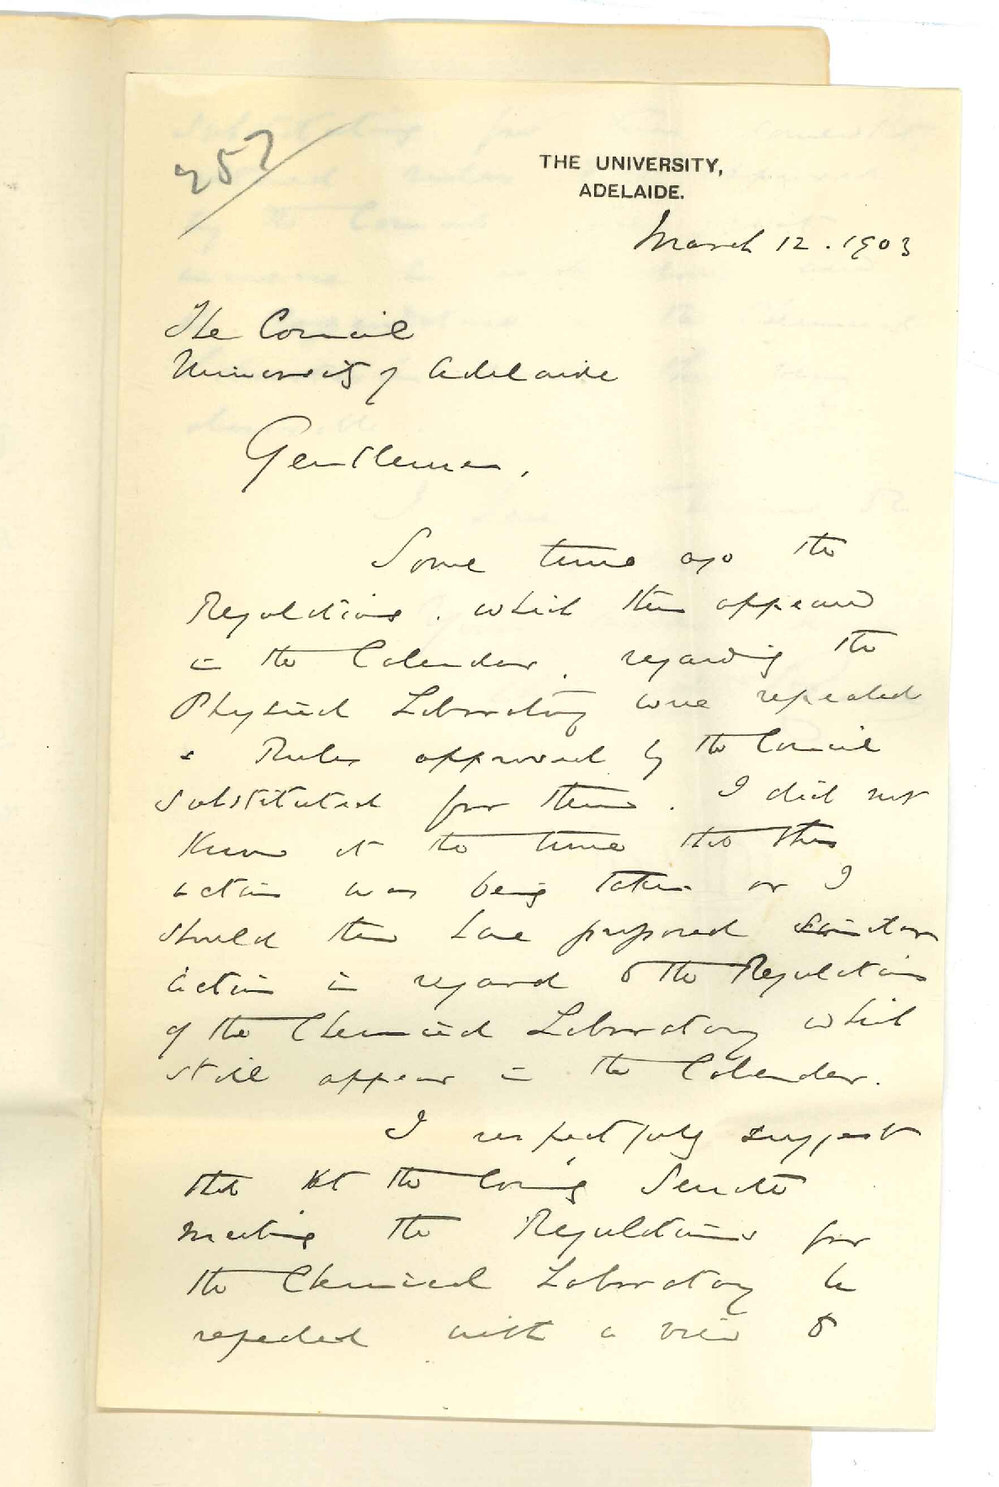 257
THE UNIVERSITY,
ADELAIDE.
March 12. 1903
The Council
University of Adelaide
Gentlemen,
Some time ago the
Regulations, which then appeared
in the Calendar, regarding the
Physical Laboratory were repealed
& Rules approved by the Council
substituted for them. I did not
know at the time that this
action was being taken or I
should then have proposed similar
action in regard to the Regulations
of the Chemical Laboratory which
still appear in the Calendar.
I respectfully suggest
that at the coming Senate
meeting the Regulations for
the Chemical Laboratory be
repealed with a view to